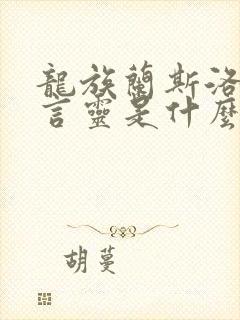 龍族蘭斯洛
言靈是什麼
胡蔓